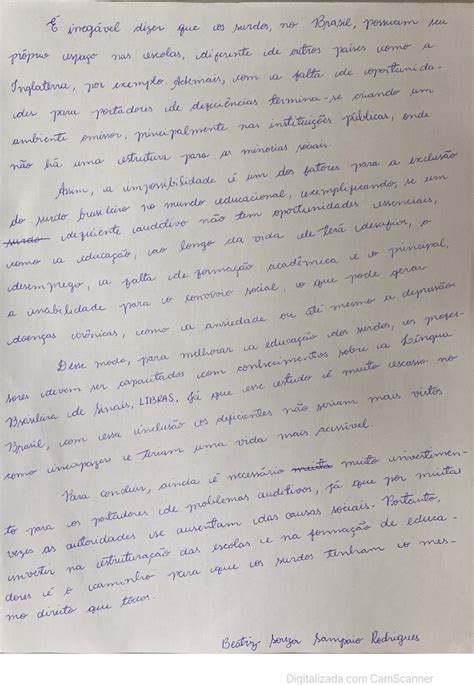 É inegável dizer que os surdos, no Brasil, possuam seu
próprio espaço nas escolas, diferente de outros países como a
Inglaterra, por exemplo. Ademais, com a falta de oportunida-
des para portadores de deficiências termina-se criando um
ambiente omissor, principalmente nas instituições públicas, onde
não há uma estrutura para as minorias sociais.
Assim, a impossibilidade é um dos fatores para a exclusão
do surdo brasileiro no mundo educacional, exemplificando, se um
surdo deficiente auditivo não tem oportunidades essenciais,
como a educação, ao longo da vida ele terá desafios, o
desemprego, a falta de formação acadêmica e o principal,
a inabilidade para o convívio social, o que pode gerar
doenças crônicas, como a ansiedade ou até mesmo a depressão
Desse modo, para melhorar a educação dos surdos, os profes-
sores devem ser capacitados com conhecimentos sobre a Língua
Brasileira de Sinais, LIBRAS, já que esse estudo é muito escasso no
Brasil, com essa inclusão os deficientes não seriam mais vistos
como incapazes e teriam uma vida mais acessível.
Para concluir, ainda é necessário muito muito investimen-
to para os portadores de problemas auditivos, já que por muitas
vezes as autoridades se ausentam das causas sociais. Portanto,
investir na estruturação das escolas e na formação de educa-
dores é o caminho para que os surdos tenham o mes-
mo direito que todos.
Beatriz Souza Sampaio Rodrigues
Digitalizada com CamScanner